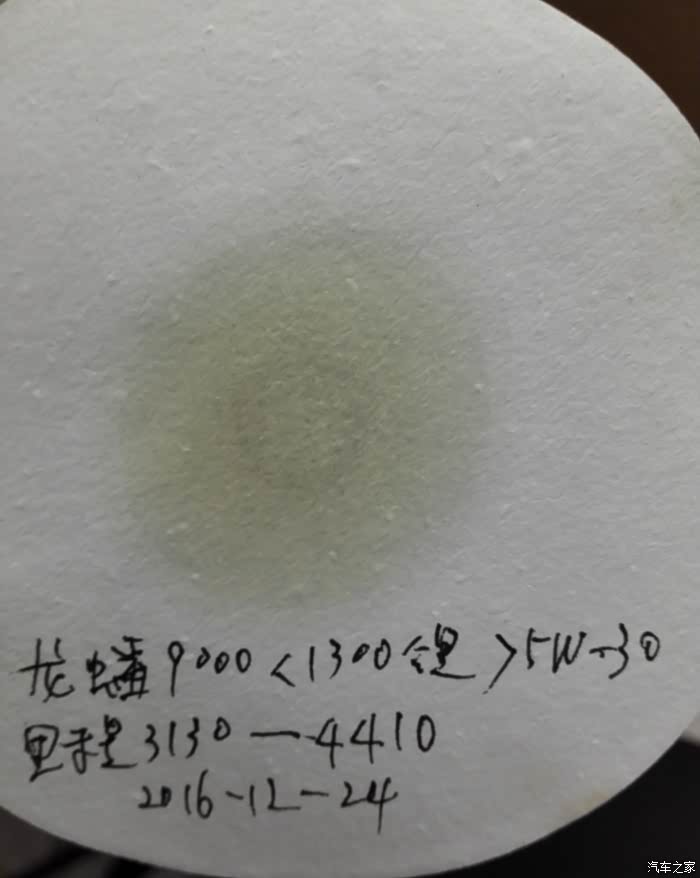 龙蟠9000<1300公里>5W-30
里程3130—4410
2016-12-24
汽车之家